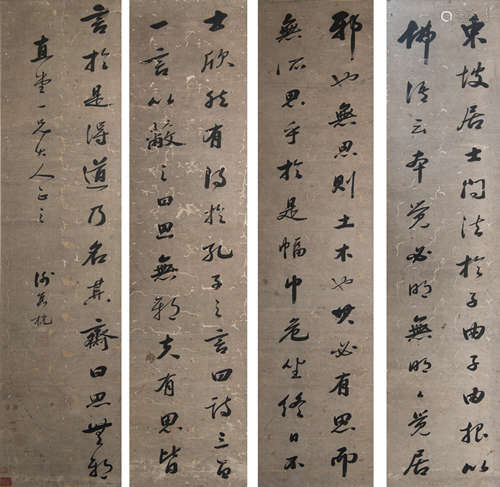 東坡居士問法於子由子由報以
佛語云本覺必明無明明覺居
士欣然有得於孔子之言曰詩三百
一言以蔽之曰思無邪夫有思皆
邪也無思則土木也其必有思而
無所思乎於是幅巾危坐終日不
言於是得道乃名其齋曰思無邪
直堂一兄大人正之